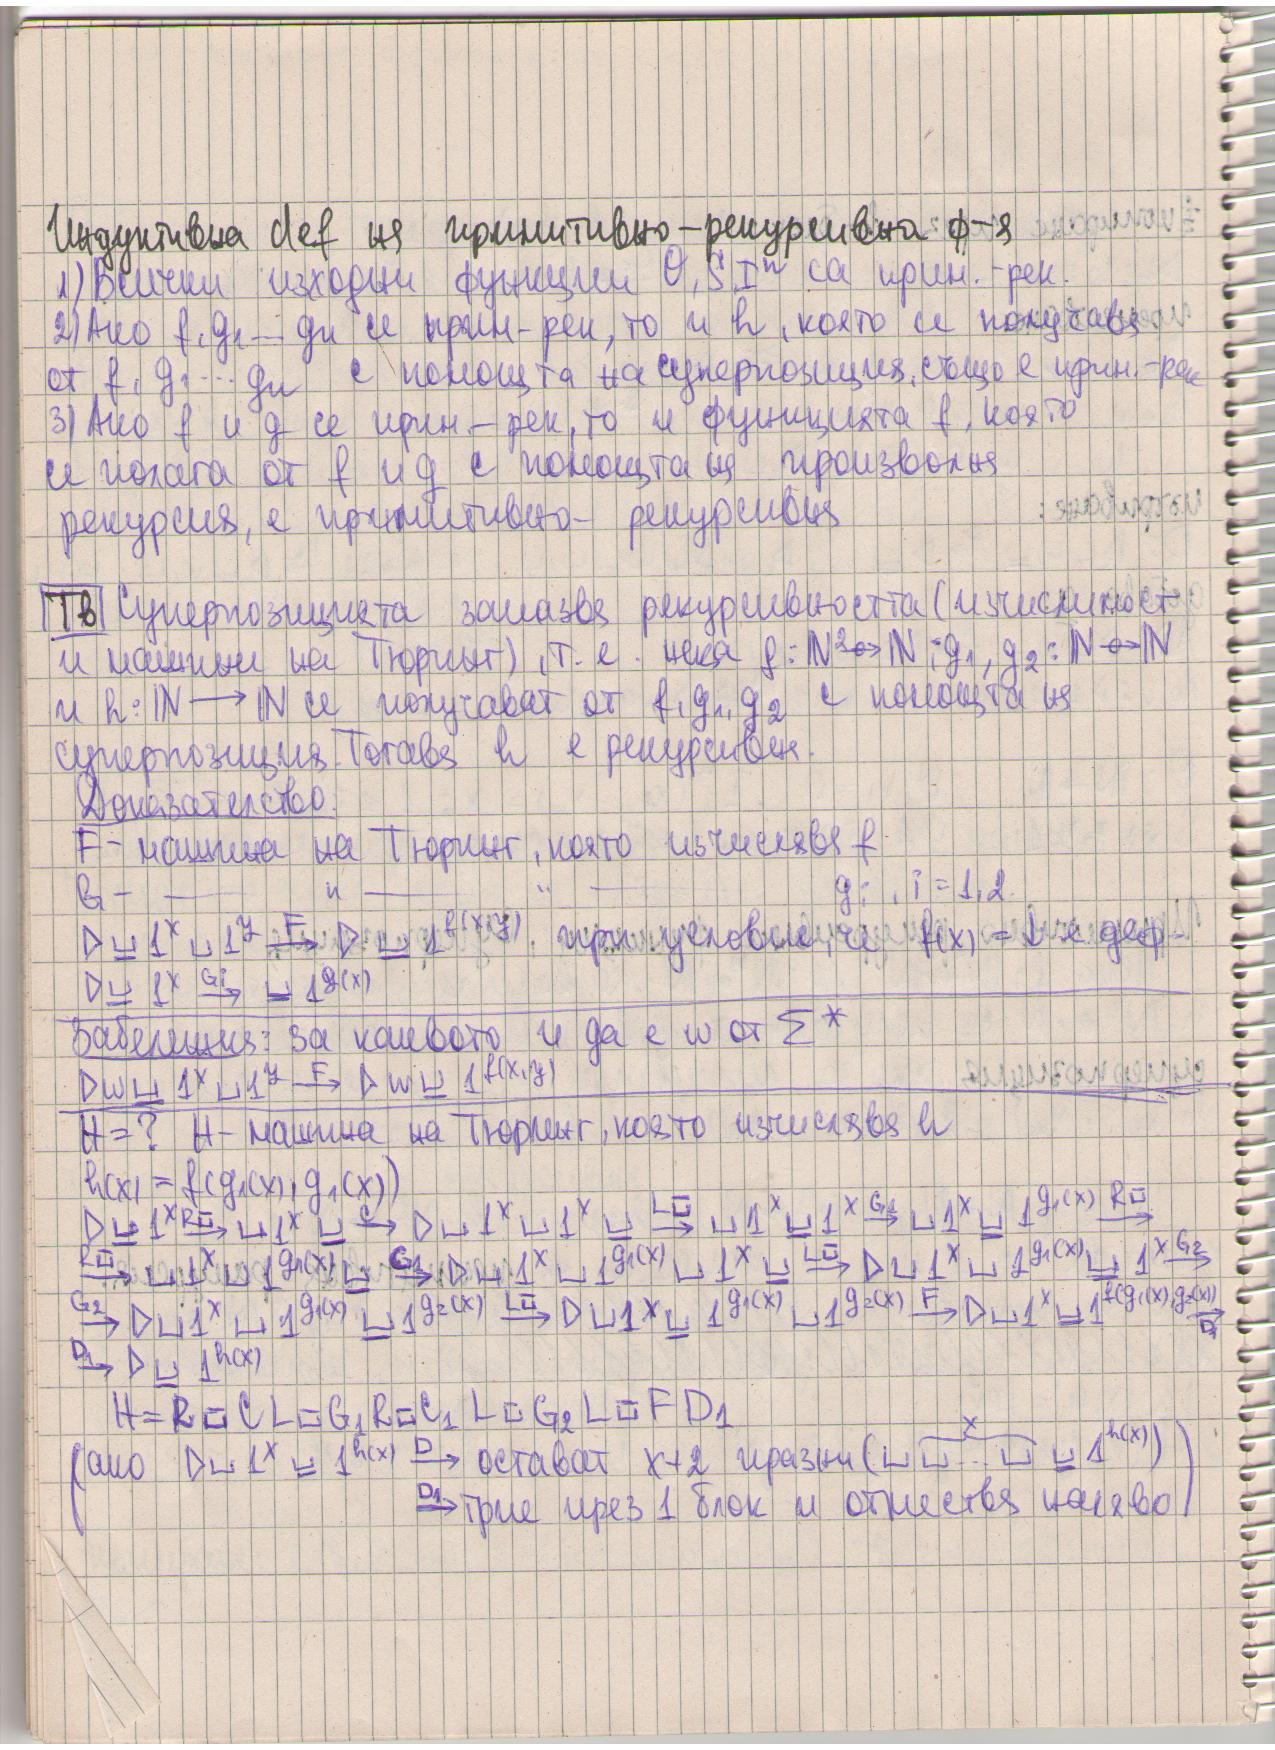 Индуктивна def на примитивно-рекурсивна ф-я
1) Всички изходни функции O, S, Iⁿ са прим.-рек.
2) Ако f, g₁...gₙ се прим-рек, то и h, която се получава
от f, g₁...gₙ с помощта на суперпозиция, също е прим.-рек
3) Ако f и g се прим.-рек, то и функцията f, която
се полага от f и g с помощта на произволна
рекурсия, е примитивно- рекурсивна
Тв Суперпозицията запазва рекурсивността (изчислимост
и машини на Тюринг), т.е. нека f: ℕ²↔ℕ; g₁, g₂: ℕ↔ℕ
и h: ℕ → ℕ се получават от f, g₁, g₂ с помощта на
суперпозиция. Тогава h е рекурсивен.
Доказателство.
F - машина на Тюринг, която изчислява f
G - — " — " — gᵢ, i = 1,2.
▷ ⊔ 1ˣ ⊔ 1ʸ –F→ ▷ ⊔ 1^f(x,y), при условие, че f(x) = 1 е деф
▷ ⊔ 1ˣ –Gᵢ→ ⊔ 1^g(x)
Забележка: за каквото и да е w от Σ*
▷w⊔ 1ˣ ⊔ 1ʸ –F→ ▷w⊔ 1^f(x,y)
H = ? H - машина на Тюринг, която изчислява h
h(x) = f(g₁(x), g₁(x))
▷ ⊔ 1ˣ –R□→ ⊔ 1ˣ ⊔ –C→ ▷ ⊔ 1ˣ ⊔ 1ˣ ⊔ –L□→ ⊔ 1ˣ ⊔ 1ˣ –G₁→ ⊔ 1ˣ ⊔ 1^g₁(x) –R□→
–R□→ ⊔ 1ˣ ⊔ 1^g₁(x) ⊔ –C₁→ ▷ ⊔ 1ˣ ⊔ 1^g₁(x) ⊔ 1ˣ ⊔ –L□→ ▷ ⊔ 1ˣ ⊔ 1^g₁(x) ⊔ 1ˣ –G₂→
–G₂→ ▷ ⊔ 1ˣ ⊔ 1^g₁(x) ⊔ 1^g₂(x) –L□→ ▷ ⊔ 1ˣ ⊔ 1^g₁(x) ⊔ 1^g₂(x) –F→ ▷ ⊔ 1ˣ ⊔ 1^f(g₁(x),g₂(x)) –D₁→
–D₁→ ▷ ⊔ 1^h(x)
H = R□ C L□ G₁ R□ C₁ L□ G₂ L□ F D₁
(ако ▷ ⊔ 1ˣ ⊔ 1^h(x) –D→ остават x+2 празни (⊔ ⊔ ... ⊔ ⊔ 1^h(x)) x
–D₁→ трие през 1 блок и отмества наляво)